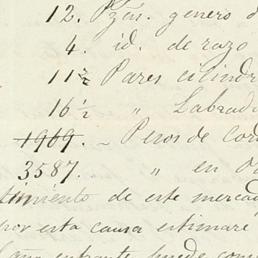 12. Pzas. genero d
4. id. de razo
11 1/2 Pares cilindr
16 1/2 " Labrad
1969. - Pesos de cord
3587. " en o
timiento de este mercad
por esta causa estimare
entrante puede con